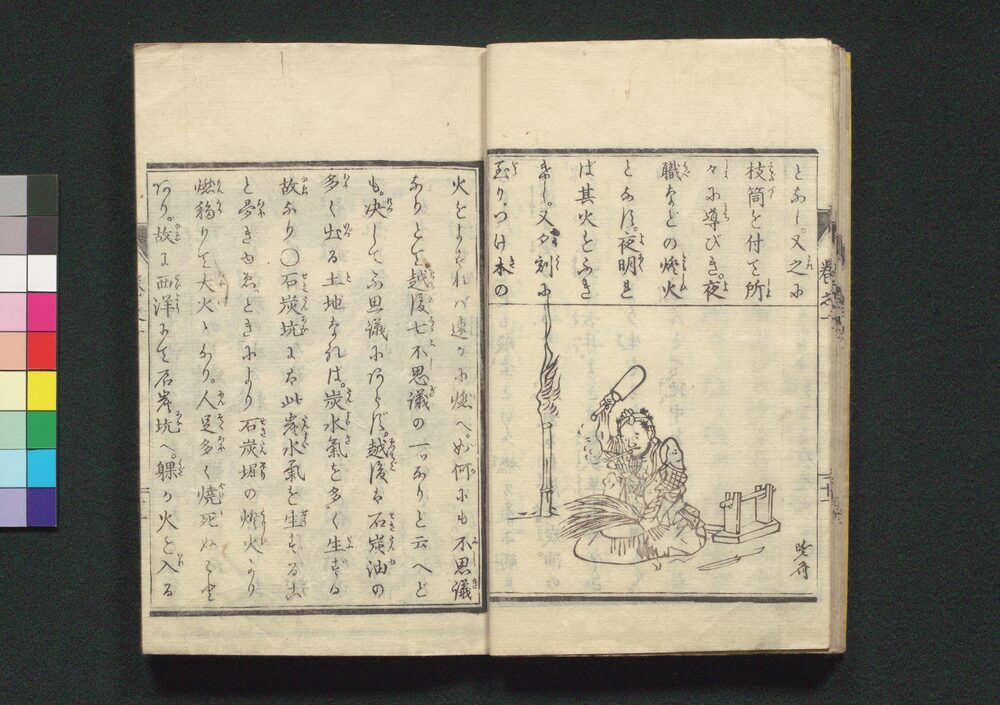 となし。又之に
枝筒を付て所
々に導びき。夜
職などの燈火
となす。夜明れ
ば其火をふき
けし。又夕刻に
至り。つけ木の
暁斎
火をよすれバ速かに燃へ。如何にも不思議
なりとて。越後七不思議の一ツなりと云へど
も。决して不思議にあらず。越後は石炭油の
多く出る土地なれば。炭水氣を多く生ずる
故なり〇石炭坑にても此炭水氣を生ずる
と夥き
石炭堀の燈火より
燃移りて大火となり。人足多く燒死ぬこと
あり。故に西洋にて石炭坑へ。躶か火を入る